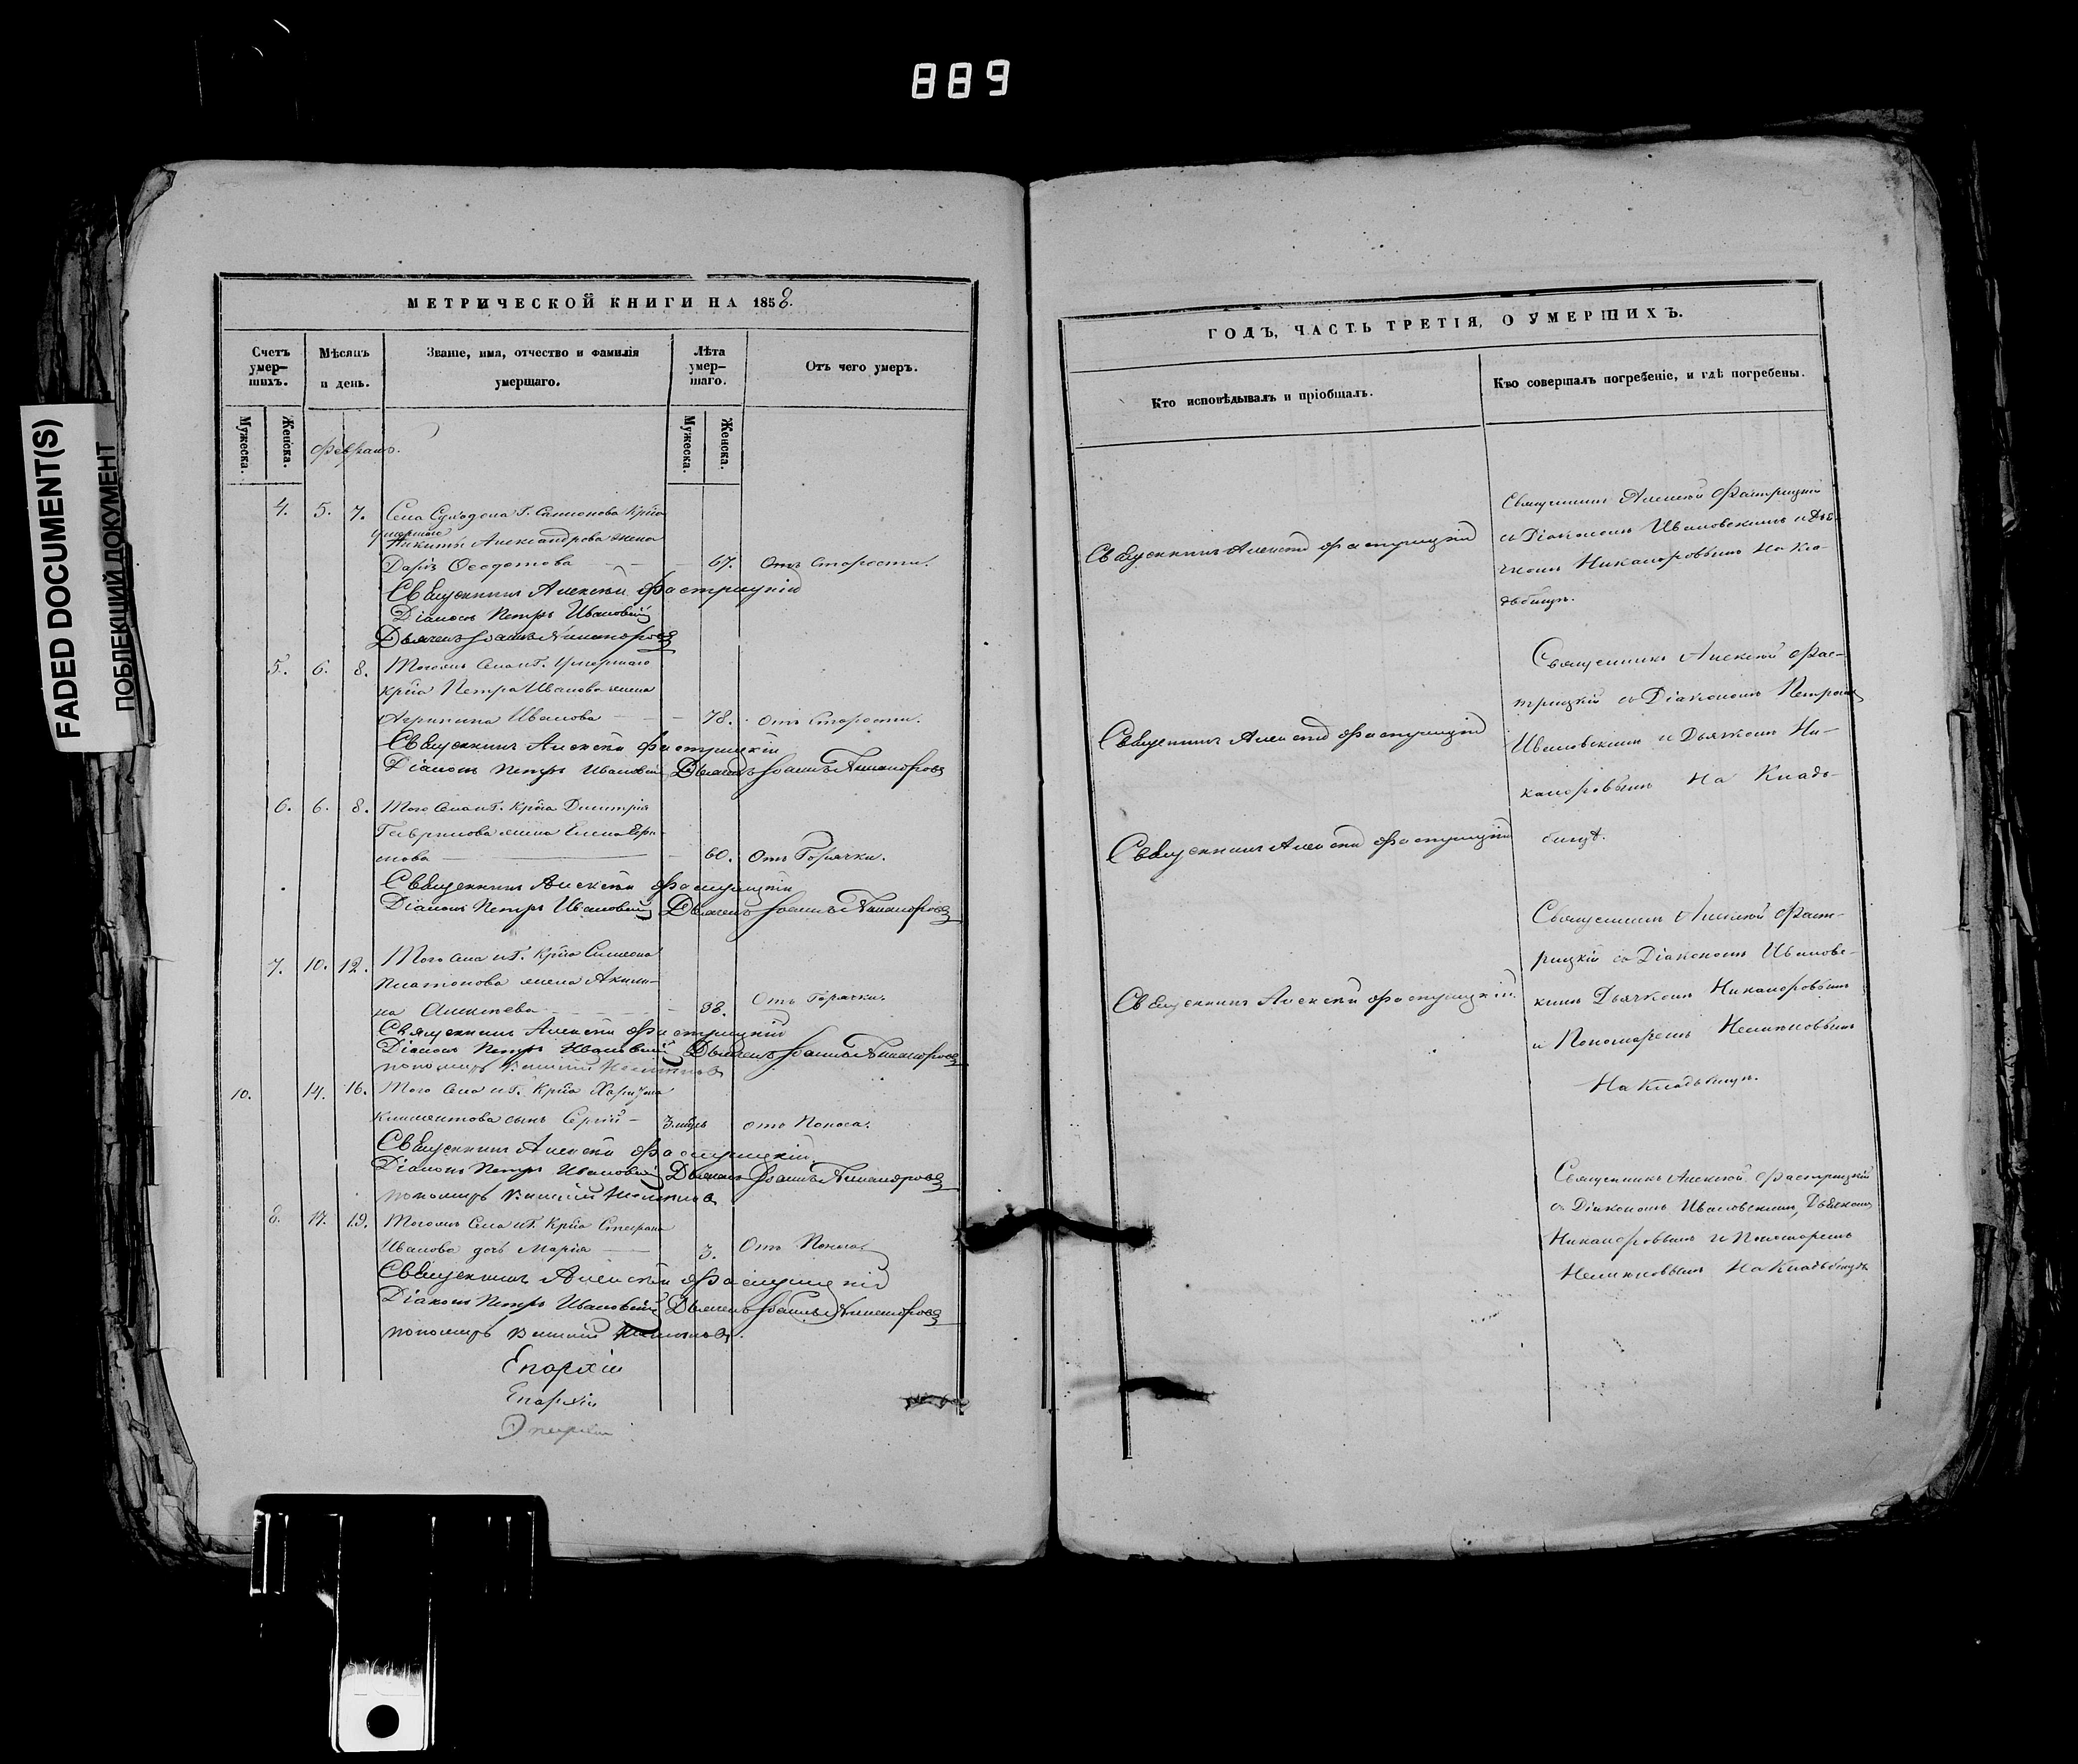 889
FADED DOCUMENT(S)
ПОБЛЕКШИЙ ДОКУМЕНТ
МЕТРИЧЕСКОЙ КНИГИ НА 1858.
Счетъ умер-шихъ.
Мѣсяцъ и день.
Званіе, имя, отчество и фамилія умершаго.
Лѣта умер-шаго.
Отъ чего умеръ.
Мужеска.
Женска.
Мужеска.
Женска.
Февраль.
4. 5. 7. Села Суходола Г. Крѣ
умершаго
Никиты Александрова жена
Дарія Ѳеодотова 67. Отъ Старости.
Священникъ Алексѣй Фастрицкій
Діаконъ Петръ Ивановскій
Дьячекъ Іоаннъ Никаноровъ
5. 6. 8. Тогожъ Села и Г. Умершаго
крѣ Петра Иванова жена
Акрипина Иванова 78. отъ Старости.
Священникъ Алексѣй Фастрицкій
Діаконъ Петръ Ивановскій Дьячекъ Іоаннъ Никаноровъ
6. 6. 8. Того Села и Г. Крѣ Димитрія
Гаврилова жена Елена
60. Отъ Горячки.
Священникъ Алексѣй Фастрицкій
Діаконъ Петръ Ивановскій Дьячекъ Іоаннъ Никаноровъ
7. 10. 12. Того Села и Г. Крѣ Симеона
Платонова жена Акили-
на 38. Отъ Горячки
Священникъ Алексѣй Фастрицкій
Діаконъ Петръ Ивановскій Дьячекъ Іоаннъ Никаноровъ
пономарь
10. 14. 16. Того Села и Г. Крѣ
Климентова сынъ Сергій 3. отъ Поноса.
Священникъ Алексѣй Фастрицкій
Діаконъ Петръ Ивановскій Дьячекъ Іоаннъ Никаноровъ
пономарь
8. 17. 19. Тогожъ Села и Г. Крѣ Стефана
Иванова дочь Марія 3. Отъ Поноса
Священникъ Алексѣй Фастрицкій
Діаконъ Петръ Ивановскій Дьячекъ Іоаннъ Никаноровъ
пономарь
Епархіи
Епархіи
ГОДЪ, ЧАСТЬ ТРЕТІЯ, О УМЕРШИХЪ.
Кто исповѣдывалъ и пріобщалъ.
Кто совершалъ погребеніе, и гдѣ погребены.
Священникъ Алексѣй Фастрицкій
Священникъ Алексѣй Фастрицкій
съ Діакономъ Ивановскимъ и Дья-
чкомъ Никаноровымъ На Кла-
дбищѣ.
Священникъ Алексѣй Фастрицкій
Священникъ Алексѣй Фас-
трицкій съ Діакономъ Петромъ
Ивановскимъ и Дьячкомъ Ни-
каноровымъ На Кладь-
бищѣ.
Священникъ Алексѣй Фастрицкій
Священникъ Алексѣй Фаст-
рицкій съ Діакономъ Ивановс-
кимъ Дьячкомъ Никаноровымъ
и Пономаремъ
На Кладьбищѣ.
Священникъ Алексѣй Фастрицкій
Священникъ Алексѣй Фастрицкій
съ Діакономъ Ивановскимъ, Дьячкомъ
Никаноровымъ и Пономаремъ
На Кладьбищѣ